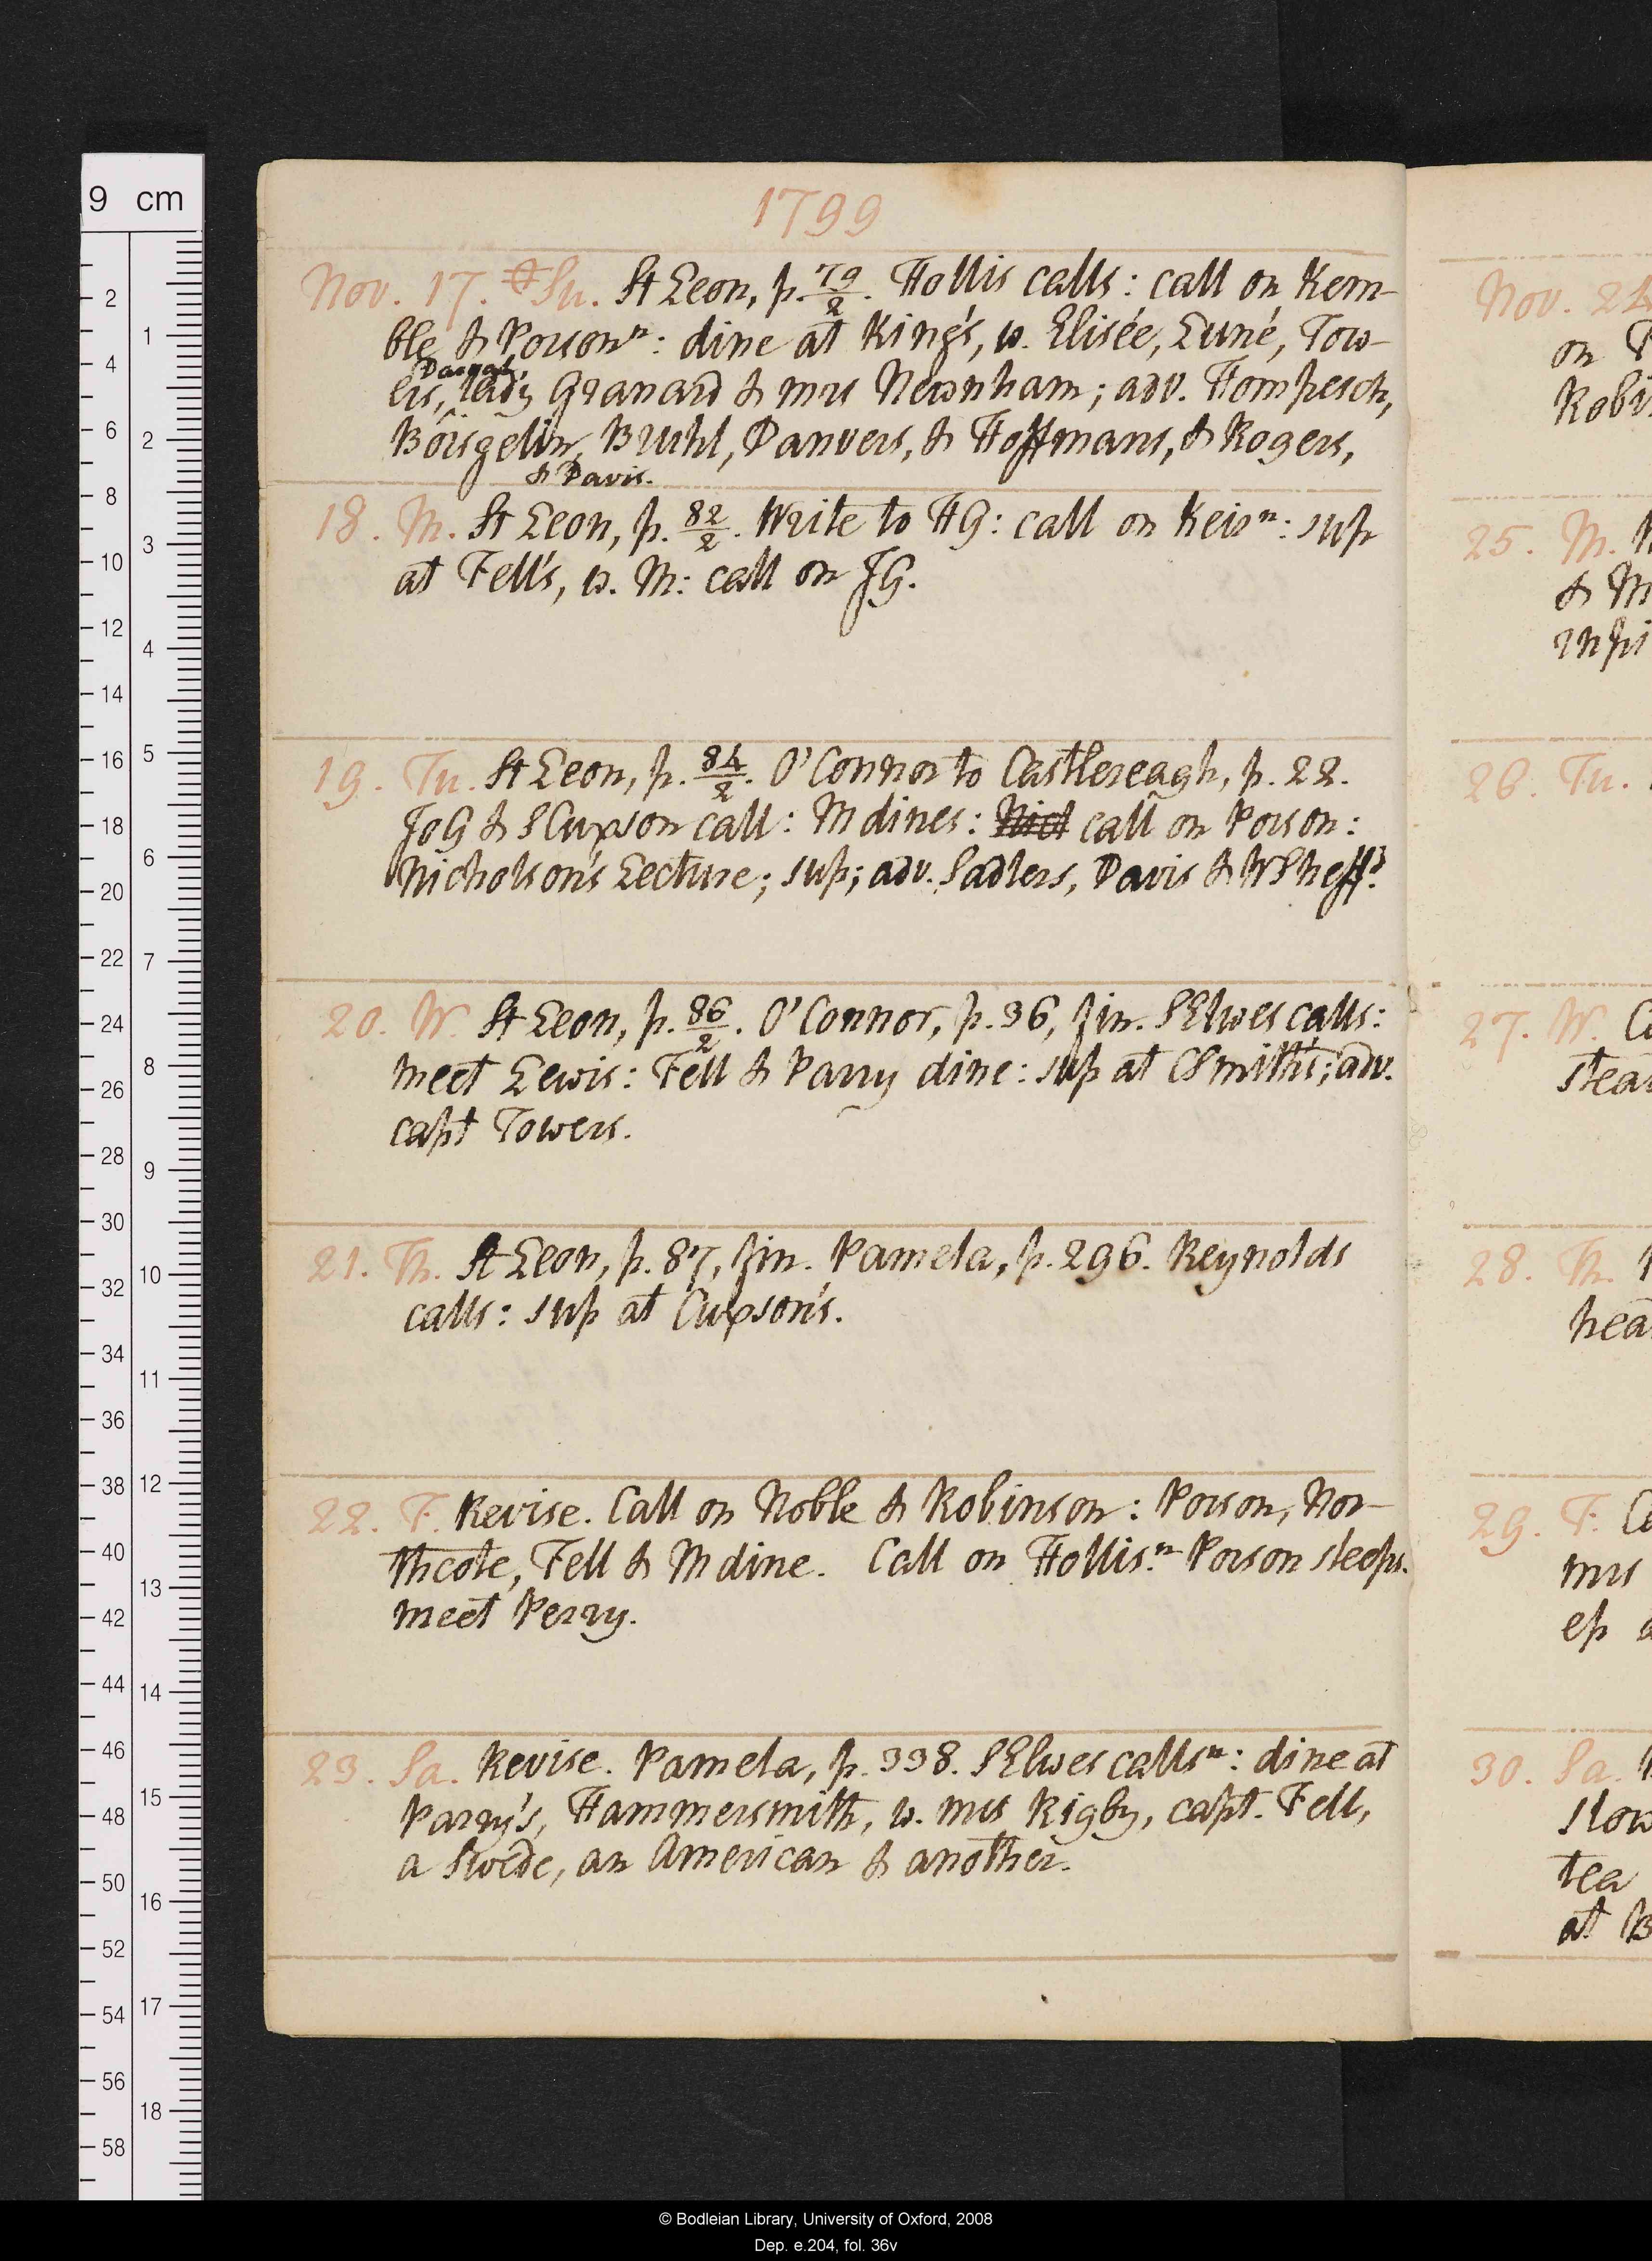 1799
Nov. 17. Su. St Leon, p. 79/2. Hollis calls: call on Kem-
ble & Porson n: dine at King's, w. Elisée, Luné, Tow-
ers, lady Granard & mrs Newnham; adv. Hompesch,
Boisgelin, Bruhl, Danvers, & Hoffmans, & Rogers,
& Davis.
18. M. St Leon, p. 82/2. Write to HG: call on Keir n: sup
at Fell's, w. M: call on JG.
19. Tu. St Leon, p. 84/2. O'Connor to Castlereagh, p. 22.
JoG & S Cupxon call: M dines: call on Porson:
Nicholson's Lecture; sup; adv. Sadlers, Davis & W Sheffd.
20. W. St Leon, p. 86/2. O'Connor, p. 36, fin. S Elwes calls:
meet Lewis: Fell & Parry dine: sup at CSmith's; adv.
capt Towers.
21. Th. St Leon, p. 87, fin. Pamela, p. 296. Reynolds
calls: sup at Cupxon's.
22. F. Revise. Call on Noble & Robinson: Porson, Nor-
thcote, Fell & M dine. Call on Hollis n. Porson sleeps.
meet Perry.
23. Sa. Revise. Pamela, p. 338. S Elwes calls n: dine at
Parry's, Hammersmith, w. mrs Rigby, capt. Fell,
a Swede, an American & another.
Nov. 24
on
25. M.
& M
26. Tu.
27. W.
28. Th.
29. F.
mrs
ep
30. Sa.
slow
tea
at B
9 cm
2 4 6 8 10 12 14 16 18 20 22 24 26 28 30 32 34 36 38 40 42 44 46 48 50 52 54 56 58
1 2 3 4 5 6 7 8 9 10 11 12 13 14 15 16 17 18
© Bodleian Library, University of Oxford, 2008
Dep. e.204, fol. 36v